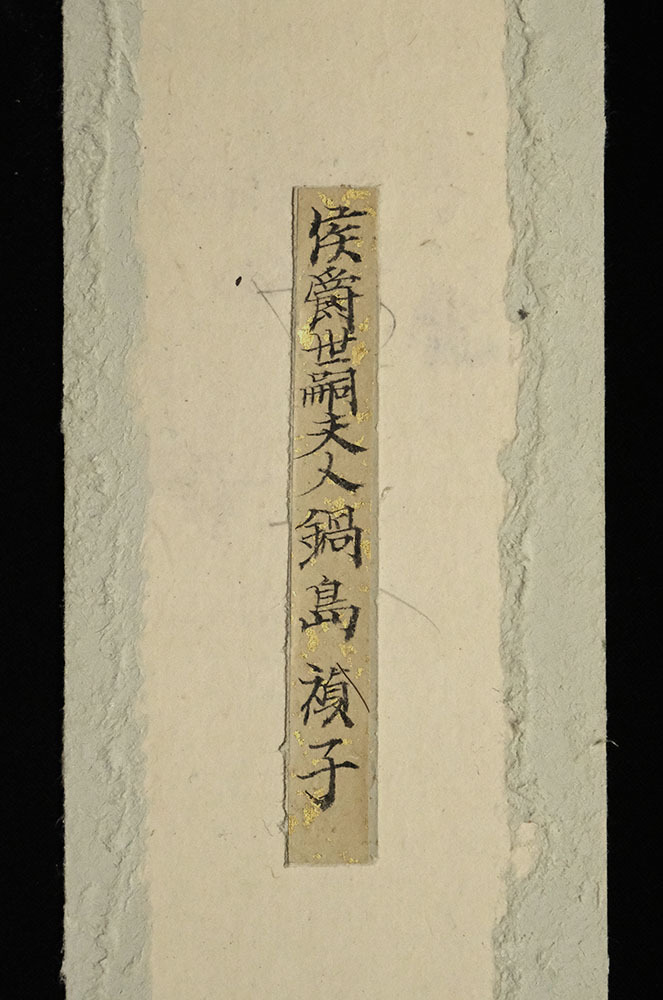 侯爵世嗣夫人鍋島禎子